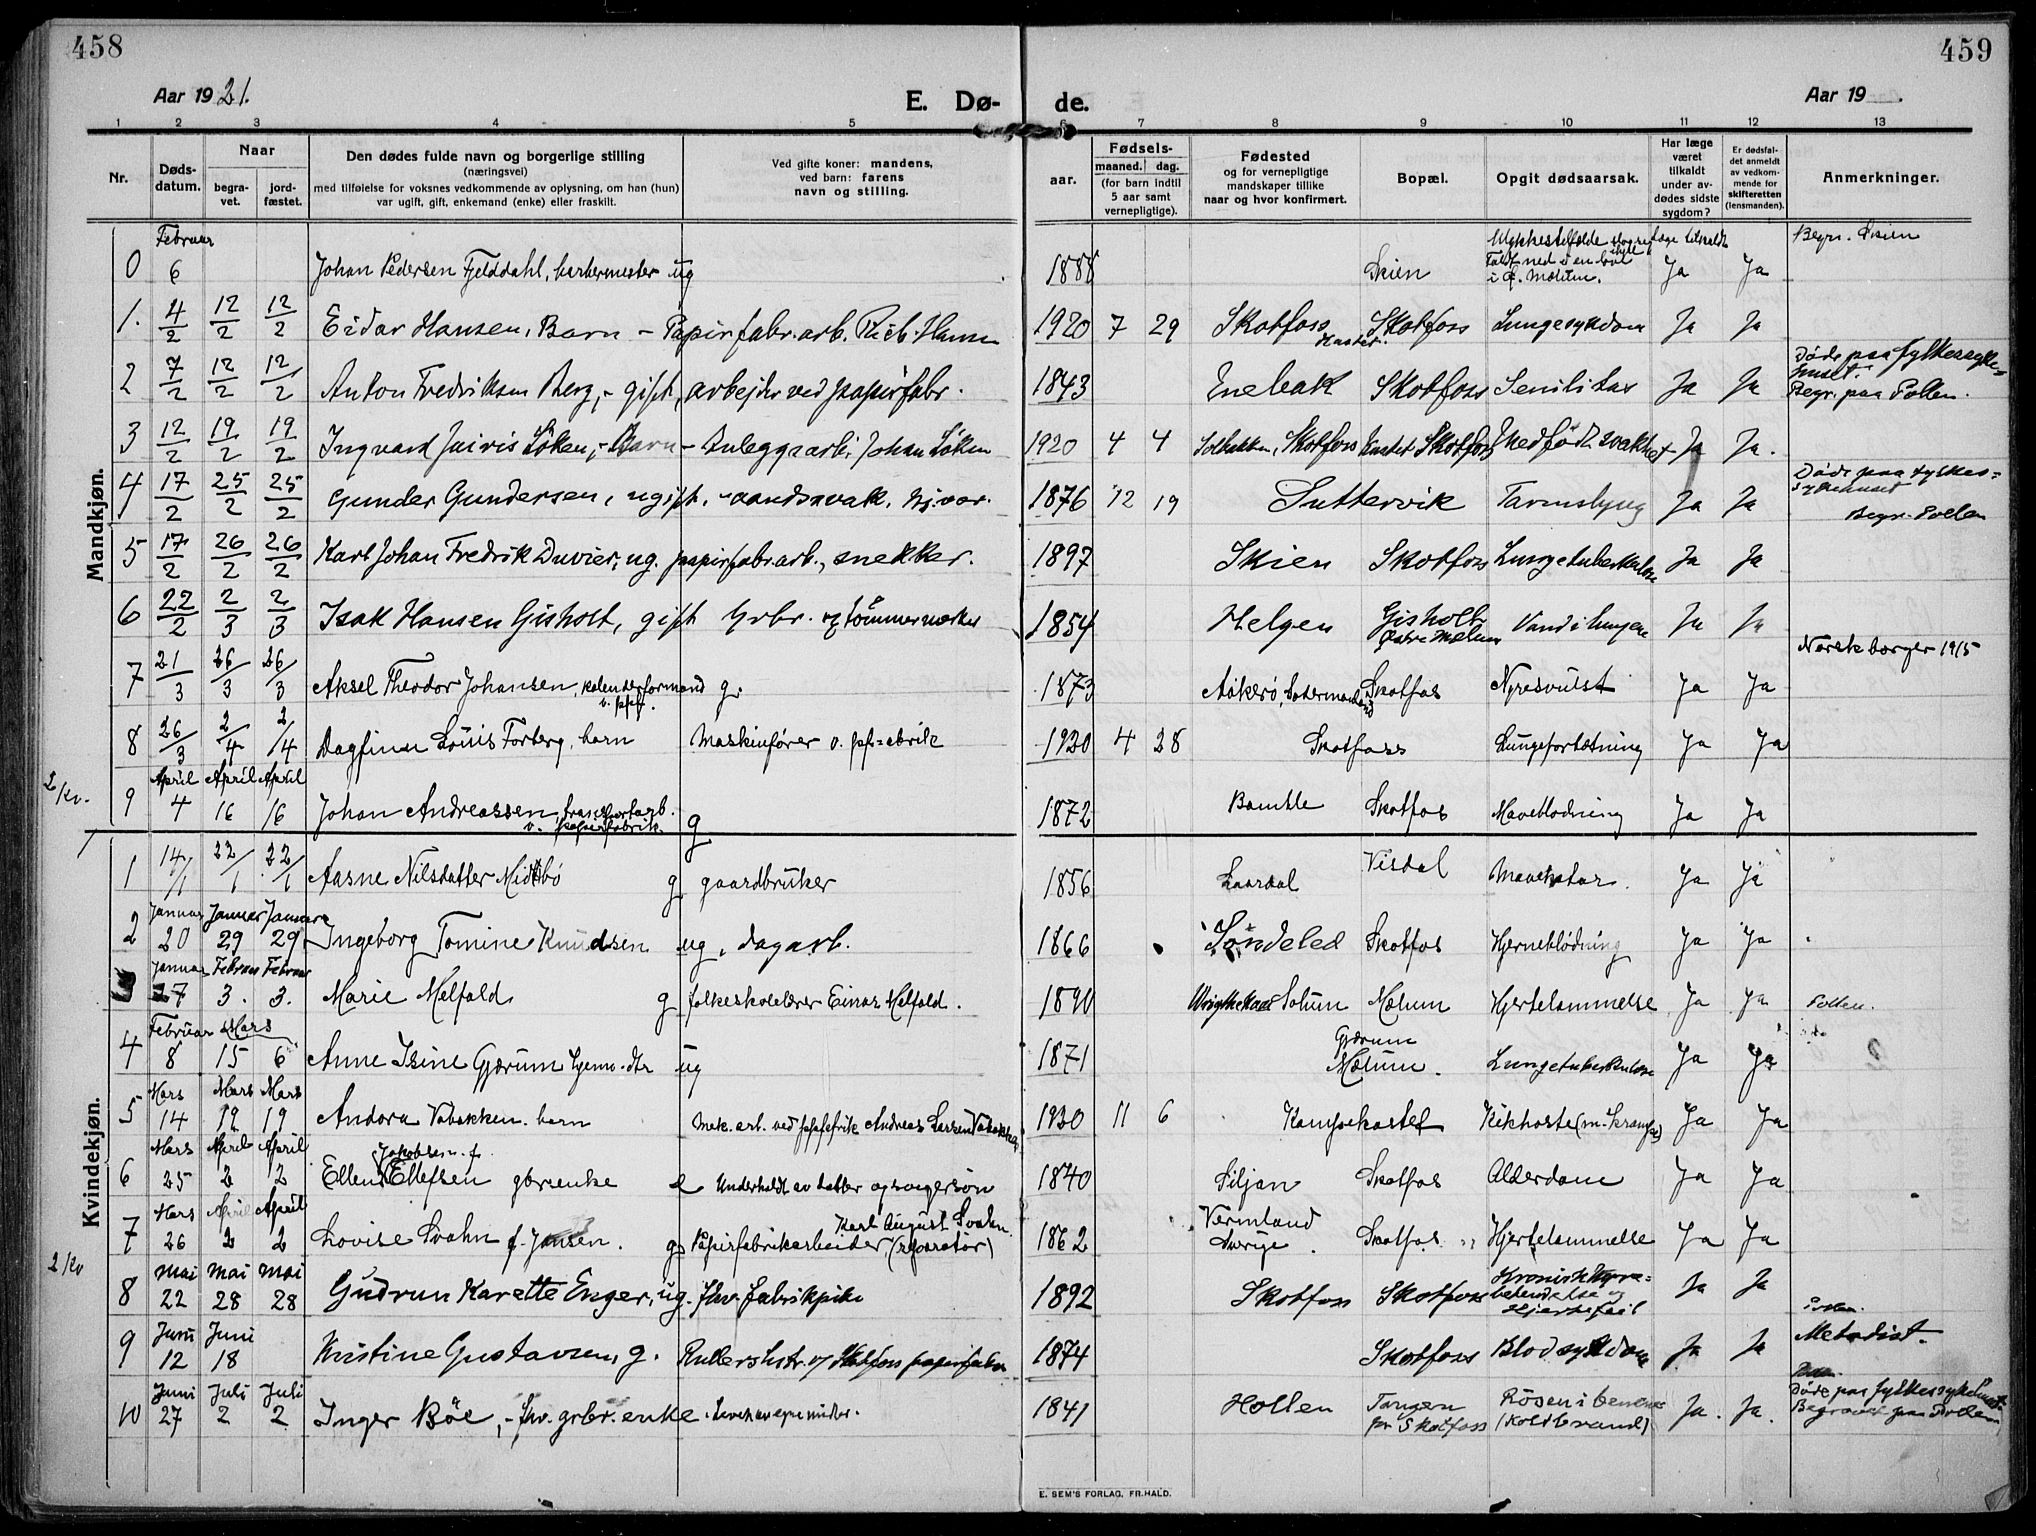 458
459
Aar 1921.
E. Dø-
de.
Aar 19 .
1 2 3 4 5 6 7 8 9 10 11 12 13
Nr.
Døds-
datum.
Naar
begra-
vet.
jord-
fæstet.
Den dødes fulde navn og borgerlige stilling
(næringsvei)
med tilføielse for voksnes vedkommende av oplysning, om han (hun)
var ugift, gift, enkemand (enke) eller fraskilt.
Ved gifte koner: mandens,
ved barn: farens
navn og stilling.
aar.
Fødsels-
maaned. dag.
(for barn indtil
5 aar samt
vernepligtige).
Fødested
og for vernepligtige
mandskaper tillike
naar og hvor konfirmert.
Bopæl.
Opgit dødsaarsak.
Har læge
været
tilkaldt
under av-
dødes sidste
sygdom?
Er dødsfal-
det anmeldt
av vedkom-
mende for
skifteretten
(lensmanden).
Anmerkninger.
Mandkjøn.
0 Februar 6 Johan Pedersen Fjelddahl, barbermester ug 1888 Skien Ulykkestilfælde Faldt ned i en i Ø. Mælum. Ja Ja Begr. Skien
1. 4/2 12/2 12/2 Eidar Hansen, Barn – Papirfabr.arb. 1920 7 29 Skotfoss Skotfoss Lungesykdom Ja Ja
2 7/2 12/2 12/2 Anton Fredriksen Berg, – gift, arbejder ved papirfabr. 1843 Enebak Skotfoss Senilitas Ja Ja Døde paa fylkessyke-
huset.
Begr. paa Pollen.
3 12/2 19/2 19/2 Ingvard Løken, – Barn – Anleggsarb. Johan Løken 1920 4 4 Solbakken, Skotfoss Skotfoss Medfødt svakhet Ja Ja.
4 17/2 25/2 25/2 Gunder Gundersen, ugift, – aandssvak, 1876 12 19 Suttervik Tarmslyng Ja Ja Døde paa fylkes-
sykehuset
Begr. Pollen
5 17/2 26/2 26/2 Karl Johan Fredrik Duvier, ug. papirfabr.arb., snekker. 1897 Skien Skotfoss Lungetuberkulose Ja Ja
6 22/2 2/3 2/3 Isak Hansen Gisholt, gift Grbr. og tømmermerker 1854 Helgen Gisholt
Østre Mælum Vand i lungene Ja Ja
7 21/3 26/3 26/3 Aksel Theodor Johansen, kalenderformand
v. ppf. g. 1873 Skotfos Nyresvulst Ja Ja Norsk borger 1915
8 26/3 2/4 2/4 Dagfinn Louis Forberg, barn Maskinfører v. 1920 4 28 Skotfoss Lungefortætning Ja Ja
9 April 4 April 16 April 16 Johan Andreassen, transportarb.
v. papirfabrik. g 1872 Bamble Skotfos Maveblødning Ja Ja
2/Kv.
Kvindekjøn.
1 14/1 22/1 22/1 Aasne Nilsdatter Midtbø g gaardbruker 1856 Laardal Visdal Ja Ja
2 Januar 20 Januar 29 Januar 29 Ingeborg Tomine Knudsen ug, dagarb. 1866 Søndeled Skotfos Hjerneblødning Ja Ja
3 Januar 27 Februar 3. Februar 3. Marie Melfald g folkeskolelærer Einar Melfald. 1890 Solum Mælum Hjertelammelse Ja Ja Pollen.
4 Februar 8 15 Mars 6 Anne Isine Gjærum ug 1871 Gjærum
Mælum. Lungetuberkulose Ja Ja
5 Mars 14 Mars 19 Mars 19 Andora Vabakken barn Andreas Larsen Vabakken 1920 11 6 Kampekastet Kikhoste (m. krampe) Ja Ja
6 Mars 25 April 2 April 2 Ellen Ellefsen Jakobsen f. gbr.enke e Underholdt av datter og svigersøn 1840 Siljan Skotfos Alderdom Ja Ja
7 Mars 26 April 2 April 2 Lovise Svahn f. Jansen. g. Karl August Svahn
Papirfabrikarbeider (reparatør) 1862 Vermland
Sverige. Skotfos Hjertelammelse Ja Ja
2 Kv
8 Mai 22 Mai 28 Mai 28 Gudrun Karette Enger, ug. fhv. fabrikpike 1892 Skotfoss Skotfoss Kronisk nyre-
betendelse og
Hjertefeil Ja Ja
9 Juni 12 Juni 18 Kristine Gustavsen, g. Skotfoss papirfabr. 1874 Skotfoss Blodsykdom Ja Ja Pollen.
Metodist.
10 Juni 27 Juli 2 Juli 2 Inger Bøe, – fhv. grbr. enke. Levet av egne midler. 1841 Hollen Tangen
pr Skotfoss Rosen i benene
(Koldbrand) Ja. Ja. Døde paa fylkessykehuset.
Begravet paa Pollen
E. SEM'S FORLAG, FR.HALD.